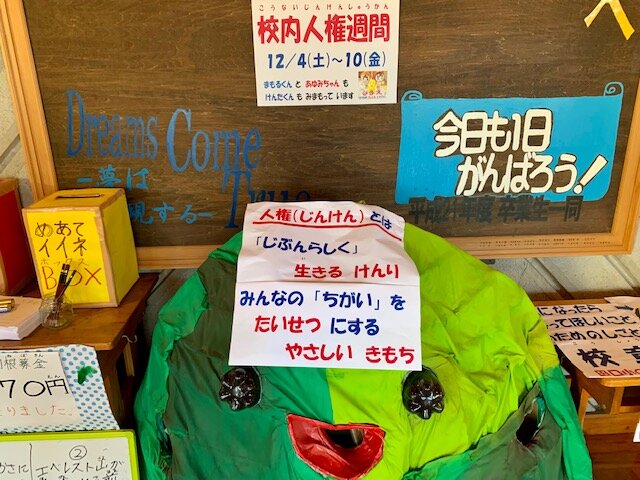 こうないじんけんしゅうかん
校内人権週間
12/4(土)〜10(金)
まもるくん と あゆみちゃん も
けんたくん も みまもって います
Dreams Come
True
-夢は
する-
今日も1日
がんばろう!
平成21年度 卒業生一同
めあて
イイネ
BOX
人権(じんけん)とは
「じぶんらしく」
生きる けんり
みんなの「ちがい」を
たいせつ にする
やさしい きもち
募金
70円
りました。
②
エベレスト山が
になったら
ってほしいこと
のためのしさ
校